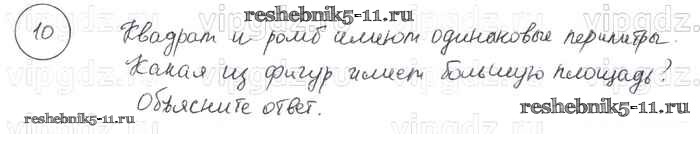 reshebnik5-11.ru
10 Квадрат и ромб имеют одинаковые периметры.
Какая из фигур имеет большую площадь?
Объясните ответ.
reshebnik5-11.ru
reshebnik5-11.ru